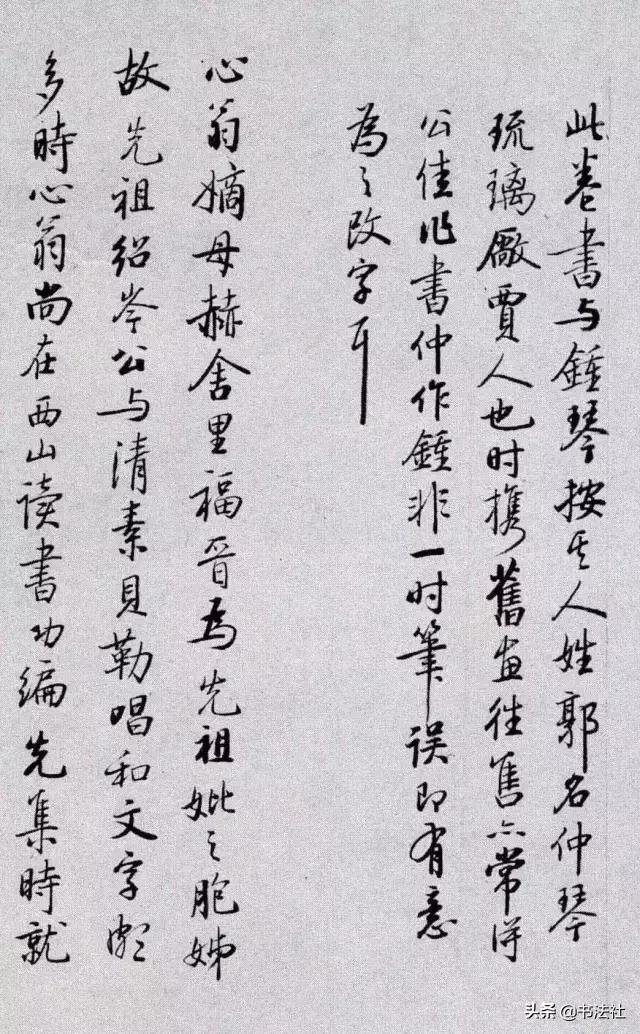 此卷书与鍾琴按其人姓郭名仲琴
琉璃廠賈人也时携舊畫往售亦常得
公佳作書仲作鍾非一时筆误即有意
為之改字耳
心翁嫡母赫舍里福晋為先祖妣之胞姊
故先祖绍岑公与清素貝勒唱和文字頗
多時心翁尚在西山读書功编先集時就
头条 @书法社